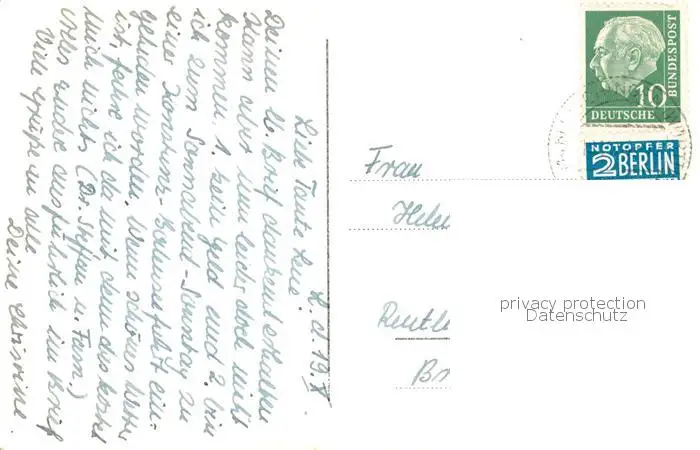 L. d. 19. V.
Liebe Tante Lene!
Deinen lb. Brief dankend erhalten
kann aber nun leider doch nicht
kommen. 1. kein Geld und 2. bin
ich zum Sonnabend-Sonntag zu
einer Konstanz-Bodenseefahrt ein-
geladen worden. Wenn schönes Wetter
ist, fahre ich da mit denn das kostet
mich nichts (Dr. Stefan u. Fam.)
Alles andere ausführlich im Brief
Viele Grüße an alle
Deine Christine
Frau
Helen
Reutl
Br
10
DEUTSCHE
BUNDESPOST
NOTOPFER
2 BERLIN
privacy protection
Datenschutz